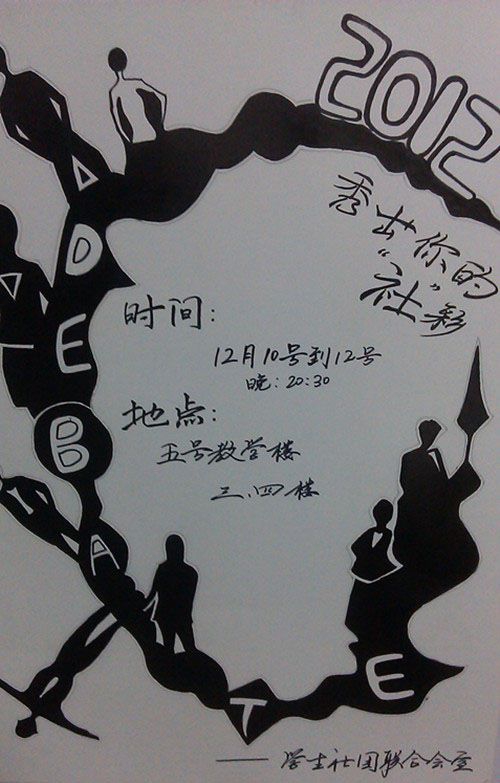 2012
秀出你的
“社”彩
DEBATE
时间:
12月10号到12号
晚:20:30
地点:
五号教学楼
三.四楼
——学生社团联合会宣